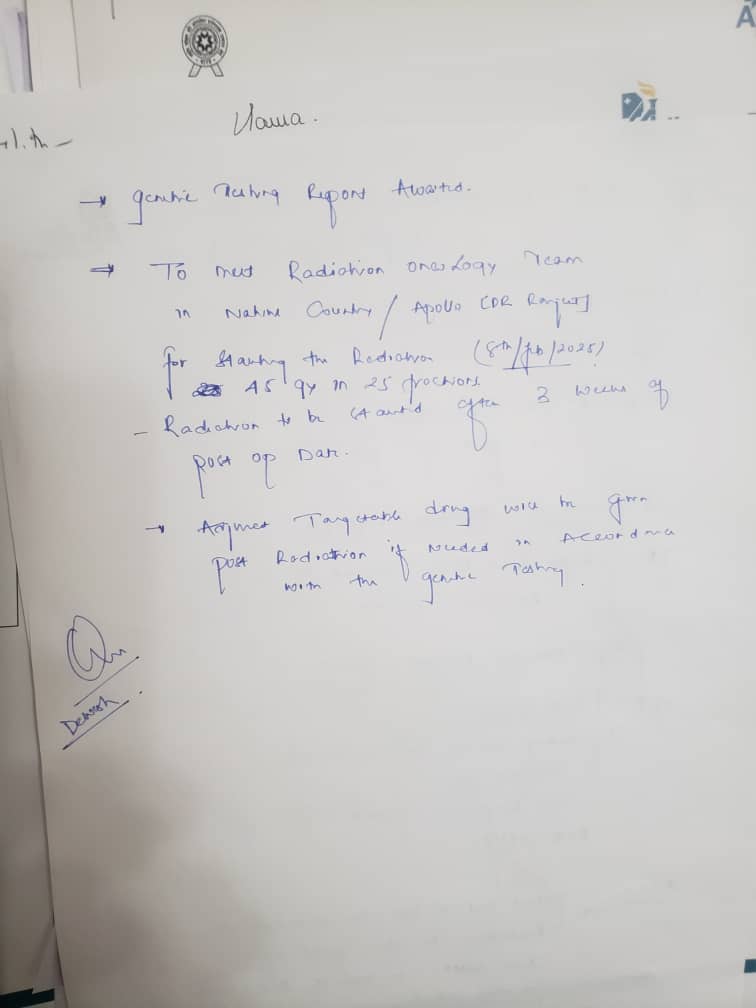 A
→ genetic Testing Report Awaited.
⇒ To meet Radiation oncology Team
in Native Country / Apollo [DR
for starting the Radiation (8th/feb/2025)
45 gy in 25 fractions.
- Radiation to be started after 3 weeks of
post op Date.
→ Targetable drug will be given
post Radiation if needed in Accordance
with the genetic Testing.